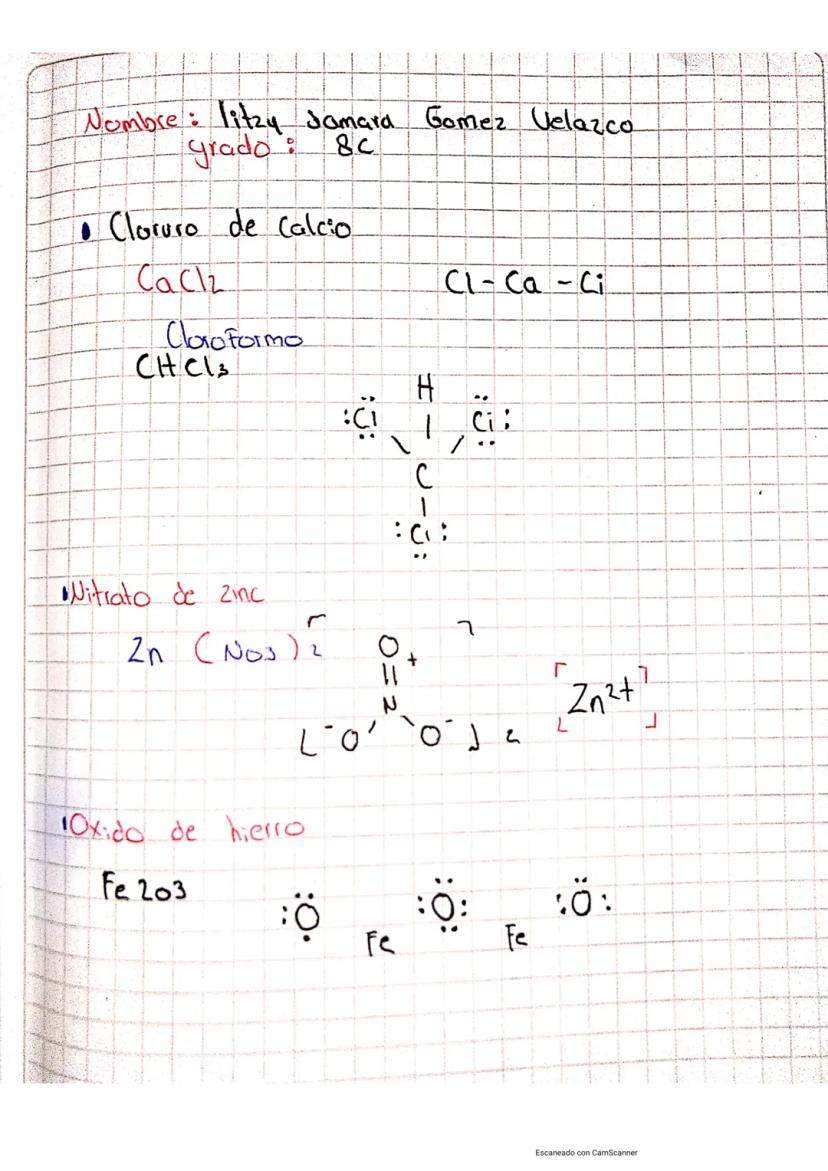 Nombre: Iitzy Samara Gomez Velazco
grado: 8C
Cloruro de Calcio
CaCl2 Cl-Ca-Ci
Cloroformo
CHCl3
H
:Ci Ci:
C
:Ci:
Nitrato de zinc
Zn (NO3)2
O+
N
[-O O-]2 [Zn2+]
Oxido de hierro
Fe2O3
:O :O: :O:
Fe Fe
Escaneado con CamScanner